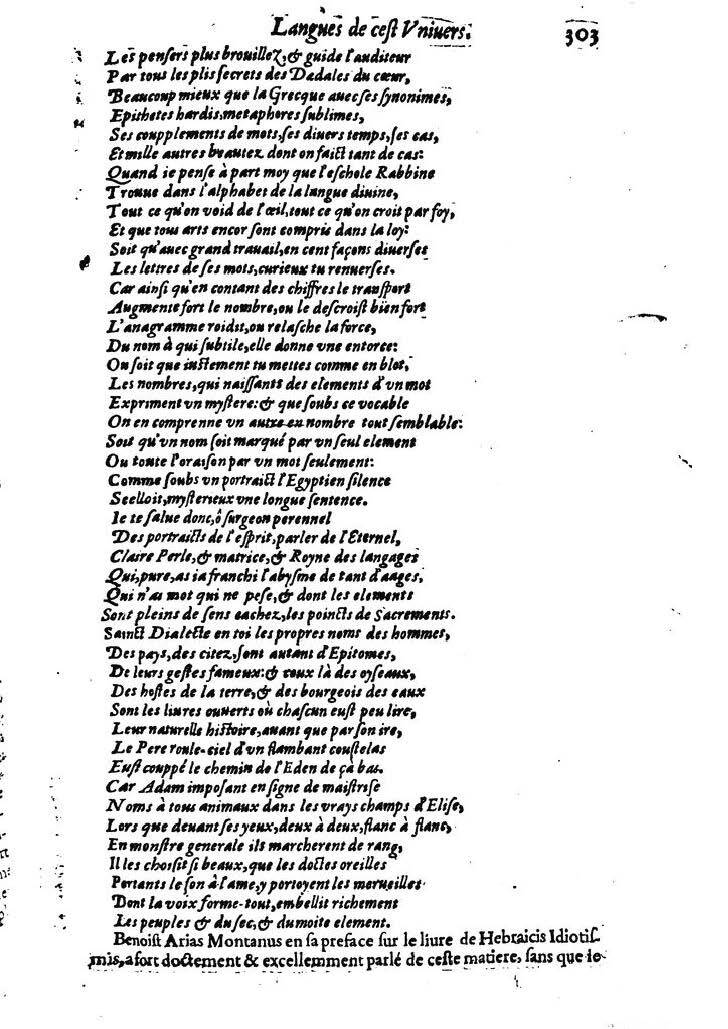 Langues de cest Vniuers. 303
Les pensers plus brouillez, & guide l'auditeur
Par tous les plis secrets des Dadales du cœur,
Beaucoup mieux que la Grecque auec ses synonimes,
Epithetes hardis, metaphores sublimes,
Ses coupplements de mots, ses diuers temps, ses cas,
Et mille autres beautez dont on faict tant de cas:
Quand ie pense à part moy que l'eschole Rabbine
Trouue dans l'alphabet de la langue diuine,
Tout ce qu'on void de l'œil, tout ce qu'on croit par foy,
Et que tous arts encor sont compris dans la loy:
Soit qu'auec grand trauail, en cent façons diuerses
Les lettres de ses mots, curieux tu renuerses.
Car ainsi qu'en contant des chiffres le transport
Augmente fort le nombre, ou le descroist bien fort
L'anagramme roidit, ou relasche la force,
Du nom à qui subtile, elle donne vne entorce:
Ou soit que iustement tu mettes comme en blot,
Les nombres, qui naissants des elements d'vn mot
Expriment vn mystere: & que soubs ce vocable
On en comprenne vn autre en nombre tout semblable:
Soit qu'vn nom soit marqué par vn seul element
Ou toute l'oraison par vn mot seulement:
Comme soubs vn portraict l'Egyptien silence
Seelloit, mysterieux vne longue sentence.
Ie te salue donc, ô surgeon perennel
Des portraicts de l'esprit, parler de l'Eternel,
Claire Perle, & matrice, & Royne des langages
Qui, pure, as ia franchi l'abysme de tant d'aages,
Qui n'as mot qui ne pese, & dont les elements
Sont pleins de sens cachez, les poincts de Sacrements.
Sainct Dialecte en toi les propres noms des hommes,
Des pays, des citez, sont autant d'Epitomes,
De leurs gestes fameux: & ceux là des oyseaux,
Des hostes de la terre, & des bourgeois des eaux
Sont les liures ouuerts où chascun eust peu lire,
Leur naturelle histoire, auant que par son ire,
Le Pere roule-ciel d'vn flambant coustelas
Eust couppé le chemin de l'Eden de çà bas.
Car Adam imposant en signe de maistrise
Noms à tous animaux dans les vrays champs d'Elise,
Lors que deuant ses yeux, deux à deux, flanc à flanc,
En monstre generale ils marcherent de rang,
Il les choisit si beaux, que les doctes oreilles
Portants le son à l'ame, y portoyent les merueilles
Dont la voix forme-tout, embellit richement
Les peuples & du sec, & du moite element.
Benoist Arias Montanus en sa preface sur le liure de Hebraicis Idiotis-
mis, a fort doctement & excellemment parlé de ceste matiere, sans que ie